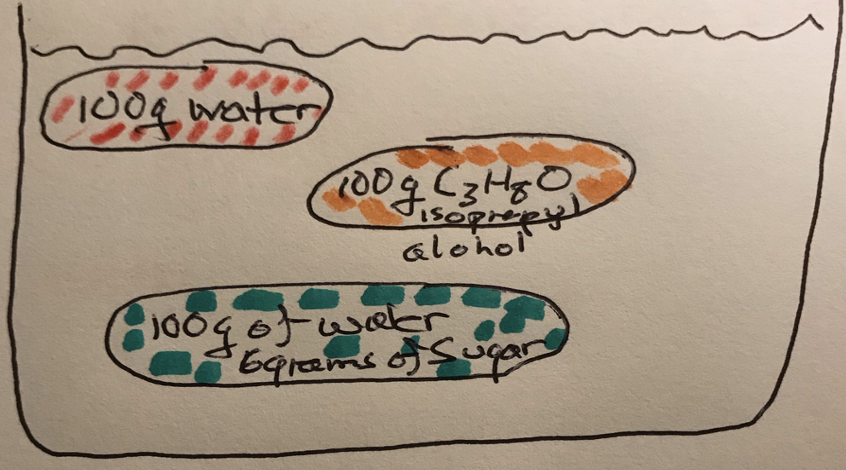 100g water
100g C₃H₈O
isopropyl
alohol
100g of water
6grams of Sugar